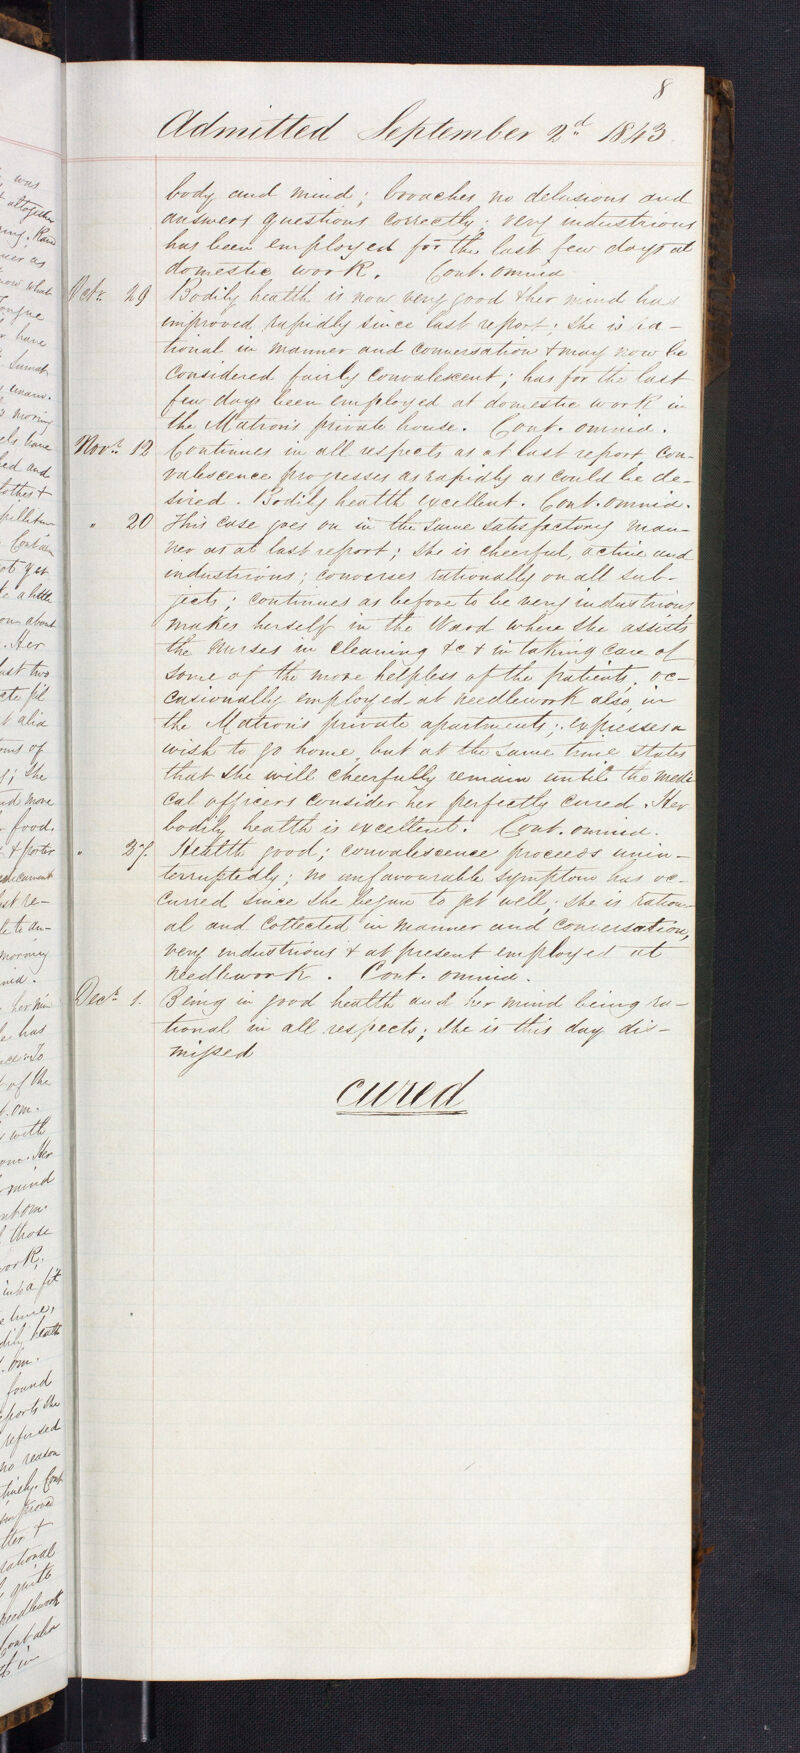 8
Admitted September 2d 1843
body and mind; broaches no delusions and
answers questions correctly; very industrious
has been employed for the last few days at
domestic work. Cont. omnia
Octr. 29 Bodily health is now very good & her mind has
improved rapidly since last report; she is ra-
tional in manner and conversation & may now be
considered fairly convalescent; has for the last
few days been employed at domestic work in
the Matron's private house. Cont. omnia.
Novr. 12 Continues in all respects as at last report con-
valescence progresses as rapidly as could be de-
sired. Bodily health excellent. Cont. omnia.
" 20 This case goes on in the same satisfactory man-
ner as at last report; she is cheerful, active and
industrious; converses rationally on all sub-
jects; continues as before to be very industrious
makes herself in the Ward where she assists
the nurses in cleaning &c & in taking care of
some of the more helpless of the patients, oc-
casionally employed at needlework also, in
the Matron's private apartments; expresses a
wish to go home, but at the same time states
that she will cheerfully remain until the medi
cal officers consider her perfectly cured. Her
bodily health is excellent. Cont. omnia.
" 27. Health good; convalescence proceeds unin-
terruptedly; no unfavourable symptom has oc-
curred since she began to get well; she is ration-
al and collected in manner and conversation,
very industrious & at present employed at
needlework. Cont. omnia.
Decr. 1. Being in good health and her mind being ra-
tional in all respects; she is this day dis-
missed
cured